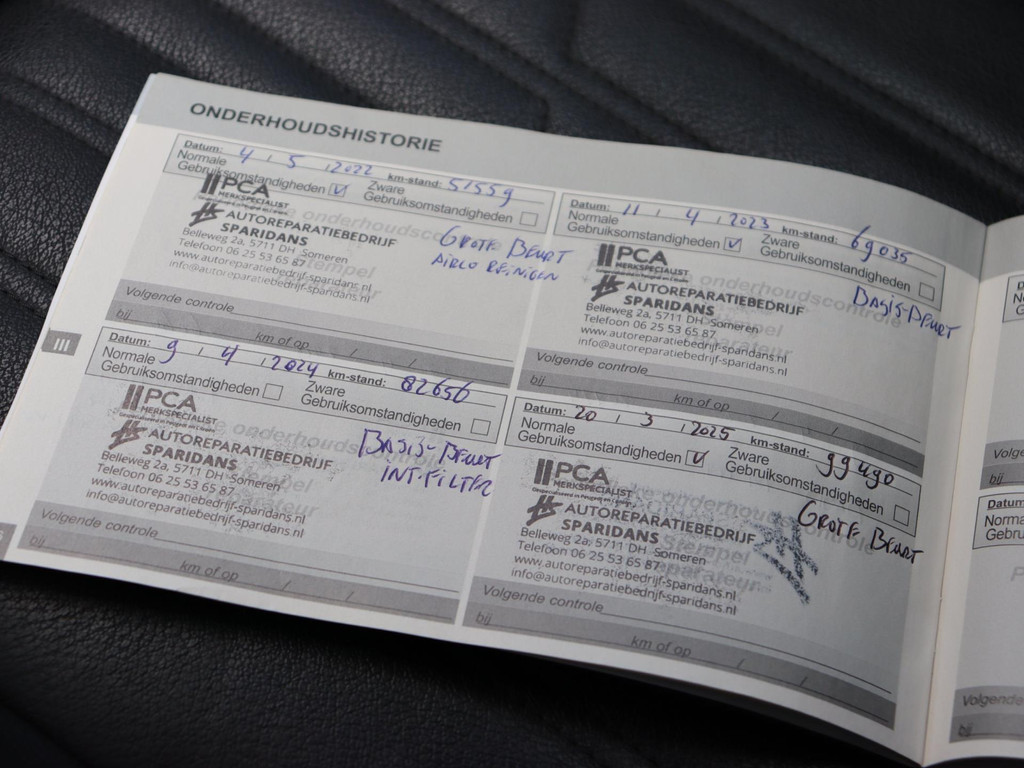 ONDERHOUDSHISTORIE
Datum: 4 / 5 / 2022 km-stand: 51559
Normale Gebruiksomstandigheden ☑ Zware Gebruiksomstandigheden ☐
PCA
MERKSPECIALIST
AUTOREPARATIEBEDRIJF
SPARIDANS
Belleweg 2a, 5711 DH Someren
Telefoon 06 25 53 65 87
www.autoreparatiebedrijf-sparidans.nl
info@autoreparatiebedrijf-sparidans.nl
GROTE BEURT
AIRCO REINIGEN
Volgende controle
bij km of op / /
Datum: 11 / 4 / 2023 km-stand: 69035
Normale Gebruiksomstandigheden ☑ Zware Gebruiksomstandigheden ☐
PCA
MERKSPECIALIST
AUTOREPARATIEBEDRIJF
SPARIDANS
Belleweg 2a, 5711 DH Someren
Telefoon 06 25 53 65 87
www.autoreparatiebedrijf-sparidans.nl
info@autoreparatiebedrijf-sparidans.nl
BASIS-BEURT
Volgende controle
bij km of op / /
III
Datum: 9 / 4 / 2024 km-stand: 82656
Normale Gebruiksomstandigheden ☐ Zware Gebruiksomstandigheden ☐
PCA
MERKSPECIALIST
AUTOREPARATIEBEDRIJF
SPARIDANS
Belleweg 2a, 5711 DH Someren
Telefoon 06 25 53 65 87
www.autoreparatiebedrijf-sparidans.nl
info@autoreparatiebedrijf-sparidans.nl
BASIS-BEURT
INT.FILTER
Volgende controle
bij km of op / /
Datum: 20 / 3 / 2025 km-stand: 99490
Normale Gebruiksomstandigheden ☑ Zware Gebruiksomstandigheden ☐
PCA
MERKSPECIALIST
AUTOREPARATIEBEDRIJF
SPARIDANS
Belleweg 2a, 5711 DH Someren
Telefoon 06 25 53 65 87
www.autoreparatiebedrijf-sparidans.nl
info@autoreparatiebedrijf-sparidans.nl
GROTE BEURT
Volgende controle
bij km of op / /